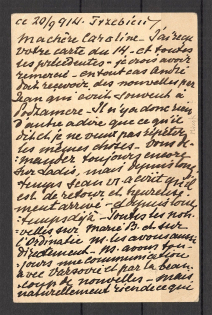 ce 20/9 914. Trzebień
Ma chère Caroline - J'ai reçu
votre carte du 14 - et toutes
les précédentes - je crois avoir
remercié - en tout cas André
doit recevoir des nouvelles par
Jean qui écrit souvent à
Podzamcze - Il n'y a donc rien
d'autre à dire que ce qu'il
dit et je ne veut pas répéter
les mêmes choses. Vous de-
mandez toujours encore
sur Ladis, mais depuis long-
temps Jean vs a écrit qu'il
est de retour et heureuse-
ment arrivé - depuis long-
temps déjà - Toutes les nou-
velles sur Marie B. et sur
l'Ordinatie ns. les avons aune
directement. Ns. avons tou-
jours une communication
avec Varsovie et par là beau-
coup de nouvelles - mais
naturellement rien de ce qui